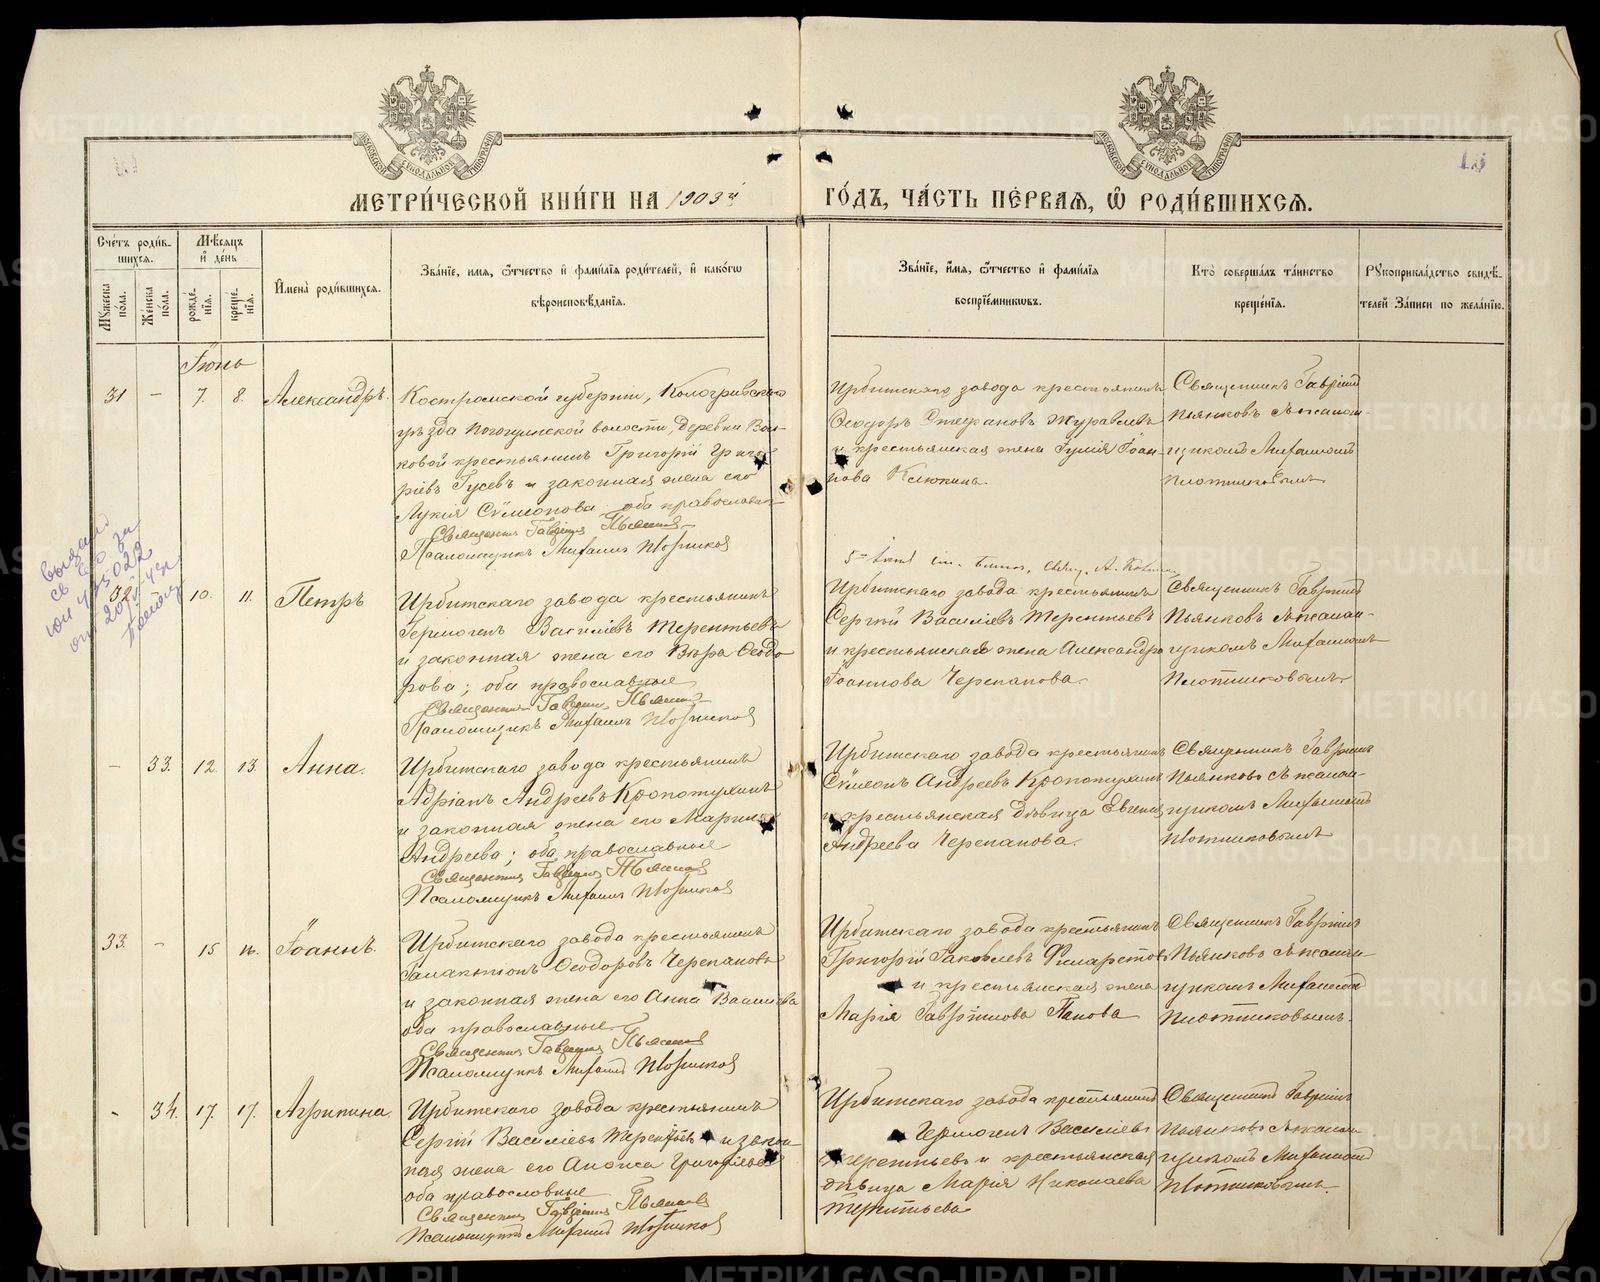 МЕТРИ́ЧЕСКОЙ КНИ́ГИ НА 1903й ГО́ДЪ, ЧА́СТЬ ПЕ́РВАѦ, Ѡ҆ РОДИ́ВШИХСѦ.
15
Сче́тъ роди́в-
шихсѧ.
Мѣ́сѧцъ
и҆ де́нь
Мꙋ́жеска по́ла.
Же́нска по́ла.
рожде́-
нїѧ.
креще́-
нїѧ.
И҆мена̀ роди́вшихсѧ.
Зва́нїе, и҆мѧ, ѻ҆́тчество и҆ фами́лїѧ роди́телей, и҆ како́гѡ
вѣроисповѣ́данїѧ.
Зва́нїе, и҆́мѧ, ѻ҆́тчество и҆ фами́лїѧ
воспрїе́мниковъ.
Кто̀ соверша́лъ та́инство
креще́нїѧ.
Рꙋкоприкла́дство свидѣ́-
телей За́писи по жела́нїю.
Іюнь
31 – 7. 8. Александръ.
Костромской губерніи, Кологривскаго
уѣзда волости, деревни
ковой крестьянинъ Григорій Григо-
ріевъ Гусевъ и законная жена его
Лукія Сѵмеонова оба православн.
Священникъ Гавріилъ Пьянковъ
Псаломщикъ Михаилъ Плотниковъ
Ирбитскаго завода крестьянинъ
Ѳеодоръ Стефановъ Журавлевъ
и крестьянская жена Іулія Іоан-
нова Клюкина.
Священникъ Гавріилъ
Пьянковъ съ псалом-
щикомъ Михаиломъ
Плотниковымъ
выдано
св
32 – 10. 11. Петръ
Ирбитскаго завода крестьянинъ
Гермогенъ Василіевъ Терентьевъ
и законная жена его Вѣра Ѳеодо-
рова; оба православные
Священникъ Гавріилъ Пьянковъ
Псаломщикъ Михаилъ Плотниковъ
Ирбитскаго завода крестьянинъ
Сергій Василіевъ Терентьевъ
и крестьянская жена Александра
Іоаннова Черепанова.
Священникъ Гавріилъ
Пьянковъ съ псалом-
щикомъ Михаиломъ
Плотниковымъ
– 33. 12. 13. Анна.
Ирбитскаго завода крестьянинъ
Адріанъ Андреевъ Кропотухинъ
и законная жена его Марина
Андреева; оба православные
Священникъ Гавріилъ Пьянковъ
Псаломщикъ Михаилъ Плотниковъ
Ирбитскаго завода крестьянинъ
Сѵмеонъ Андреевъ Кропотухинъ
и крестьянская дѣвица Евгенія
Андреева Черепанова.
Священникъ Гавріилъ
Пьянковъ съ псалом-
щикомъ Михаиломъ
Плотниковымъ
33. – 15 16. Іоаннъ.
Ирбитскаго завода крестьянинъ
Галактіонъ Ѳеодоровъ Черепановъ
и законная жена его Анна Василіева
оба православные
Священникъ Гавріилъ Пьянковъ
Псаломщикъ Михаилъ Плотниковъ
Ирбитскаго завода крестьянинъ
Григорій Іаковлевъ Филаретовъ
и крестьянская жена
Марія Гавріилова Панова
Священникъ Гавріилъ
Пьянковъ съ псалом-
щикомъ Михаиломъ
Плотниковымъ.
– 34. 17. 17. Агрипина.
Ирбитскаго завода крестьянинъ
Сергій Василіевъ Терентьевъ и закон-
ная жена его Аполса Григоріева
оба православные
Священникъ Гавріилъ Пьянковъ
Псаломщикъ Михаилъ Плотниковъ
Ирбитскаго завода крестьянинъ
Гермогенъ Василіевъ
Терентьевъ и крестьянская
дѣвица Марія Николаева
Терентьева
Священникъ Гавріилъ
Пьянковъ съ псалом-
щикомъ Михаиломъ
Плотниковымъ.
METRIKI.GASO-URAL.RU